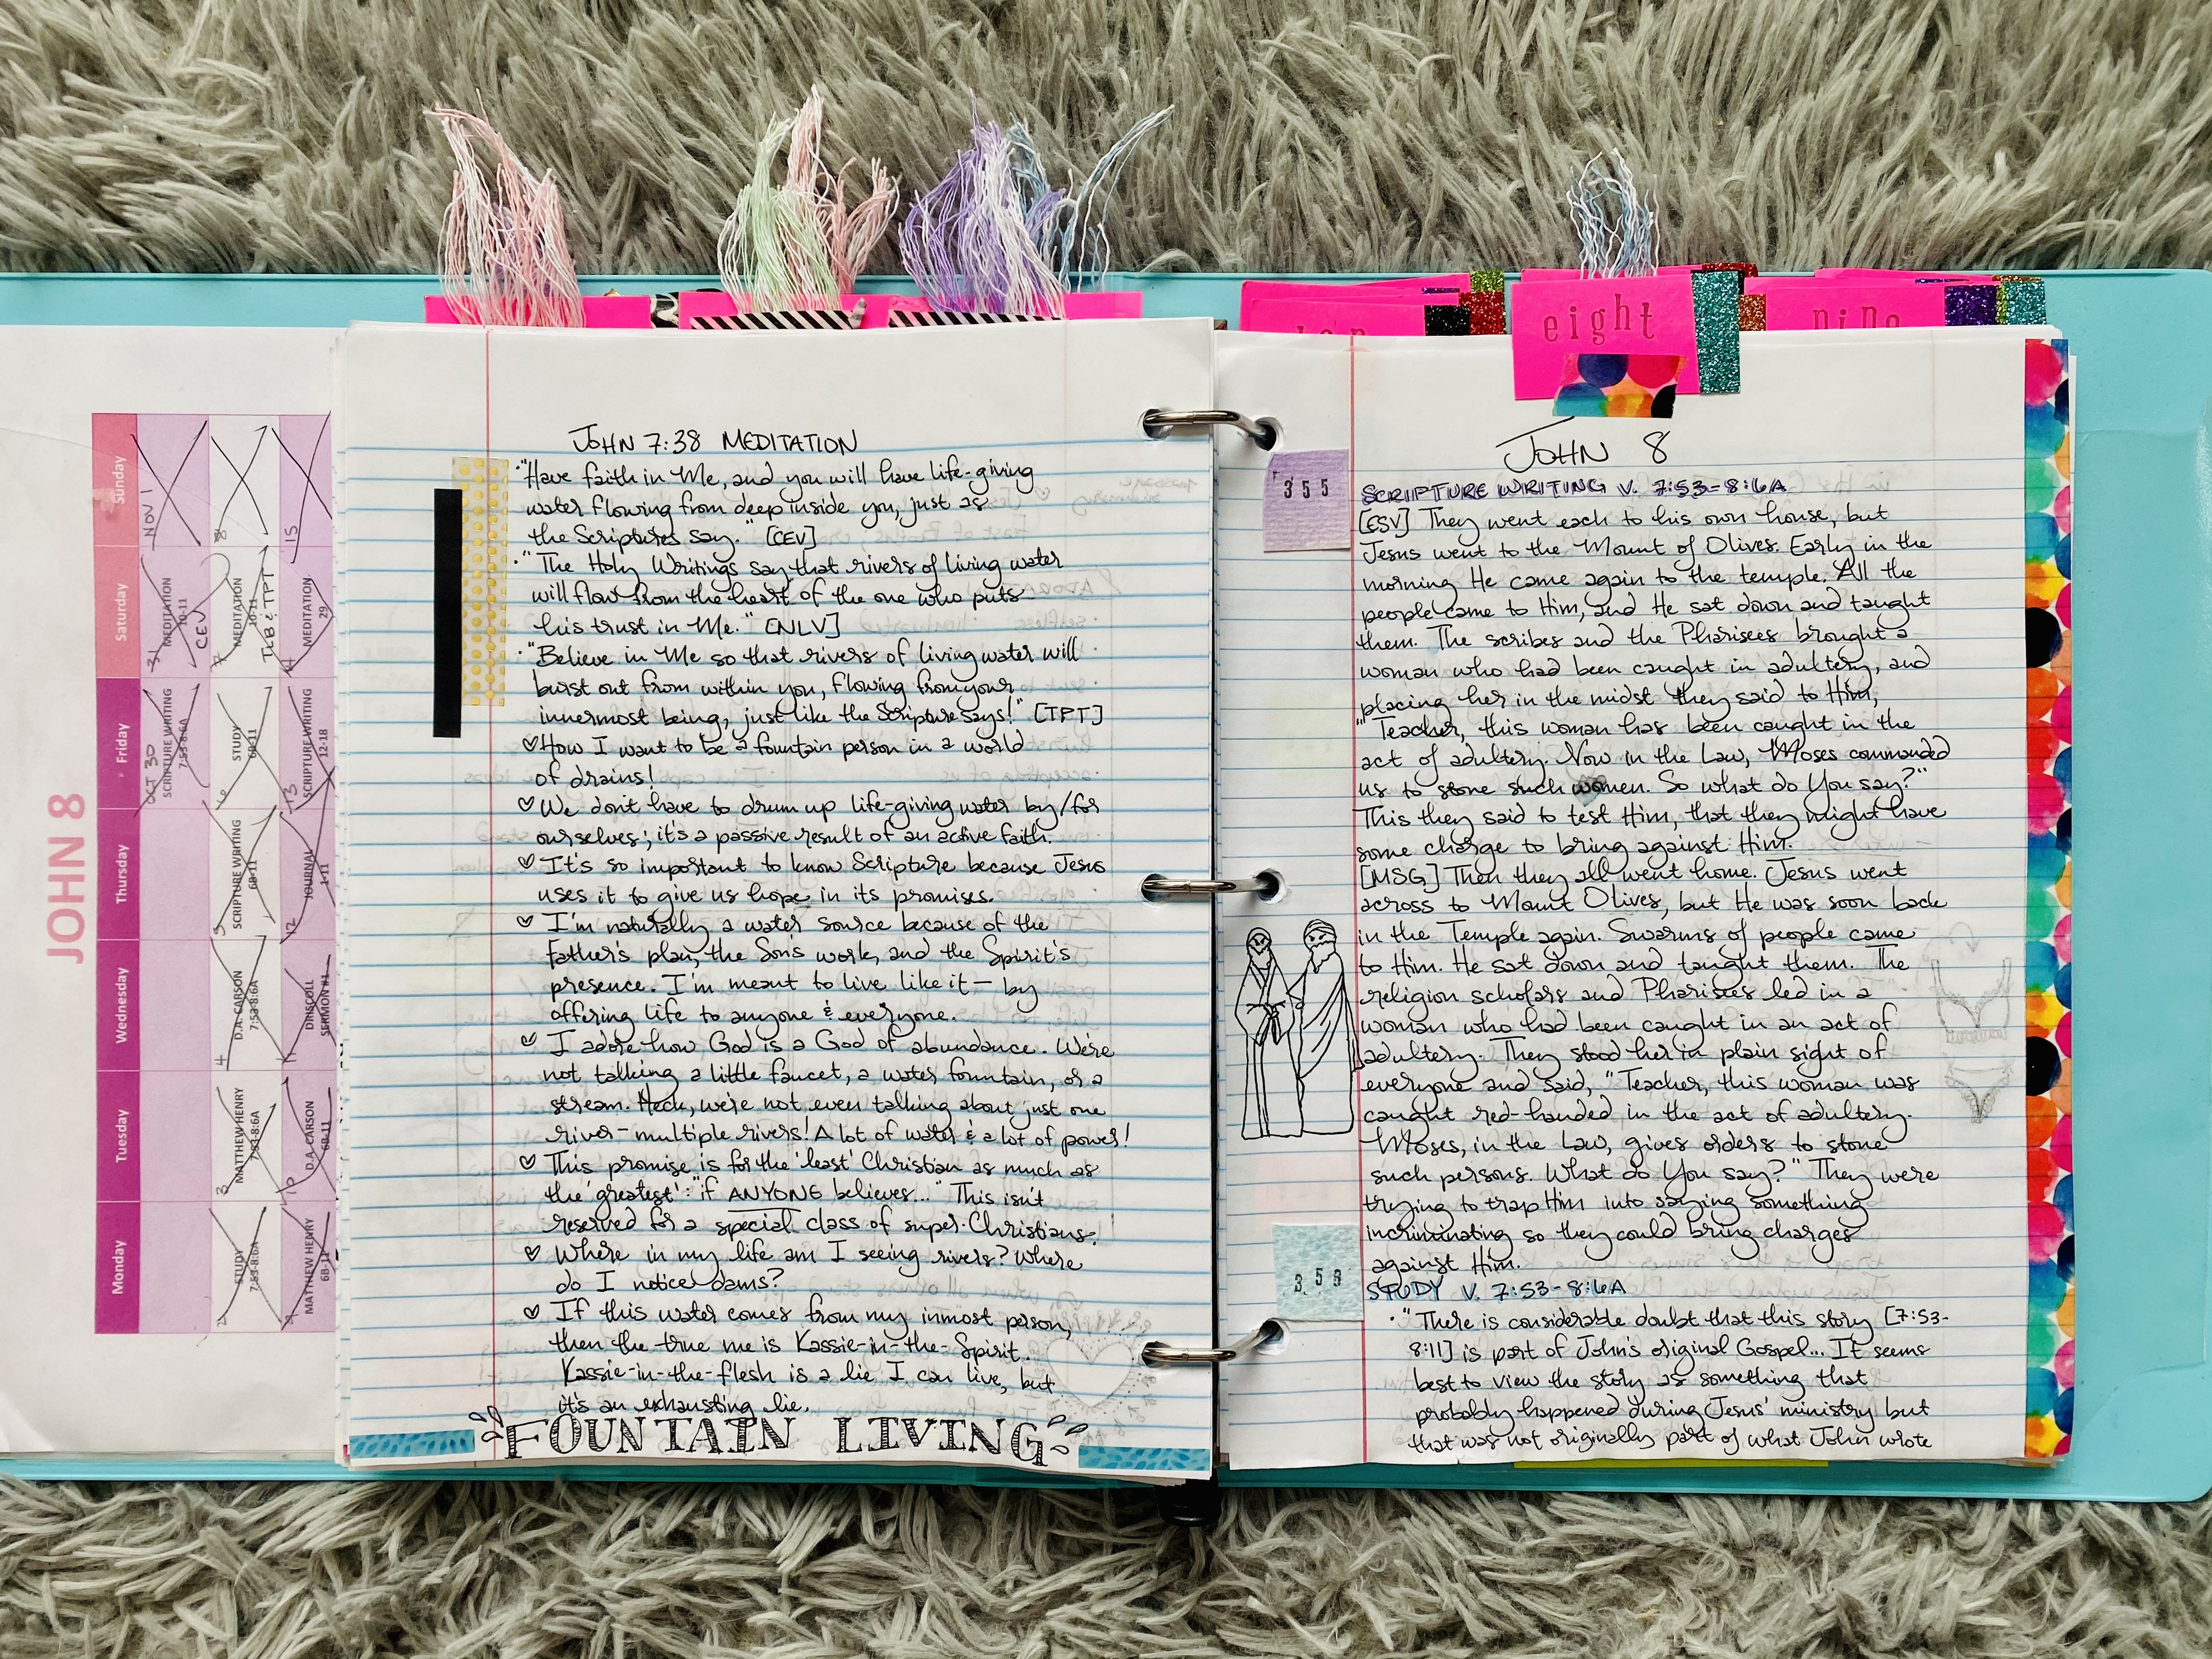 JOHN 8
Monday
Tuesday
Wednesday
Thursday
Friday
Saturday
Sunday
OCT 30
SCRIPTURE WRITING
7:53-8:6A
31
MEDITATION
10-11
CEV
NOV 1
2
STUDY
7:53-8:6A
3
MATTHEW HENRY
7:53-8:6A
4
D.A. CARSON
7:53-8:6A
5
SCRIPTURE WRITING
6B-11
6
STUDY
6B-11
7
MEDITATION
10-11
TLB & TPT
8
9
MATTHEW HENRY
6B-11
10
D.A. CARSON
6B-11
11
DRISCOLL
SERMON #1
12
JOURNAL
1-11
13
SCRIPTURE WRITING
12-18
14
MEDITATION
29
15
JOHN 7:38 MEDITATION
· "Have faith in Me, and you will have life-giving
water flowing from deep inside you, just as
the Scriptures say." [CEV]
· "The Holy Writings say that rivers of living water
will flow from the heart of the one who puts
his trust in Me." [NLV]
· "Believe in Me so that rivers of living water will
burst out from within you, flowing from your
innermost being, just like the Scripture says!" [TPT]
♡ How I want to be a fountain person in a world
of drains!
♡ We don't have to drum up life-giving water by/for
ourselves; it's a passive result of an active faith.
♡ It's so important to know Scripture because Jesus
uses it to give us hope in its promises.
♡ I'm naturally a water source because of the
Father's plan, the Son's work, and the Spirit's
presence. I'm meant to live like it - by
offering life to anyone & everyone.
♡ I adore how God is a God of abundance. We're
not talking a little faucet, a water fountain, or a
stream. Heck, we're not even talking about just one
river - multiple rivers! A lot of water & a lot of power!
♡ This promise is for the 'least' Christian as much as
the 'greatest': "if ANYONE believes..." This isn't
reserved for a special class of super-Christians.
♡ Where in my life am I seeing rivers? Where
do I notice dams?
♡ If this water comes from my inmost person,
then the true me is Kassie-in-the-Spirit.
Kassie-in-the-flesh is a lie I can live, but
it's an exhausting lie.
FOUNTAIN LIVING
eight
nine
JOHN 8
355
SCRIPTURE WRITING V. 7:53-8:6A
[ESV] They went each to his own house, but
Jesus went to the Mount of Olives. Early in the
morning He came again to the temple. All the
people came to Him, and He sat down and taught
them. The scribes and the Pharisees brought a
woman who had been caught in adultery, and
placing her in the midst they said to Him,
"Teacher, this woman has been caught in the
act of adultery. Now in the Law, Moses commanded
us to stone such women. So what do You say?"
This they said to test Him, that they might have
some charge to bring against Him.
[MSG] Then they all went home. Jesus went
across to Mount Olives, but He was soon back
in the Temple again. Swarms of people came
to Him. He sat down and taught them. The
religion scholars and Pharisees led in a
woman who had been caught in an act of
adultery. They stood her in plain sight of
everyone and said, "Teacher, this woman was
caught red-handed in the act of adultery.
Moses, in the Law, gives orders to stone
such persons. What do You say?" They were
trying to trap Him into saying something
incriminating so they could bring charges
against Him.
STUDY V. 7:53-8:6A
· "There is considerable doubt that this story [7:53-
8:11] is part of John's original Gospel... It seems
best to view the story as something that
probably happened during Jesus' ministry but
that was not originally part of what John wrote